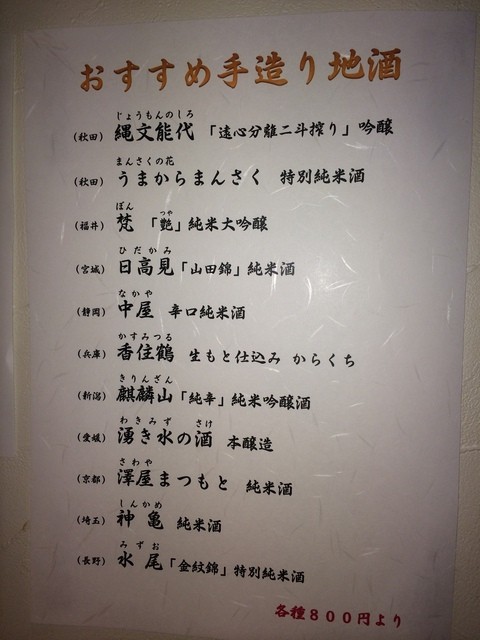 おすすめ手造り地酒
じょうもんのしろ
(秋田) 縄文能代 「遠心分離二斗搾り」吟醸
まんさくの花
(秋田) うまからまんさく 特別純米酒
ぼん つや
(福井) 梵 「艶」純米大吟醸
ひだかみ
(宮城) 日高見「山田錦」純米酒
なかや
(静岡) 中屋 辛口純米酒
かすみつる
(兵庫) 香住鶴 生もと仕込み からくち
きりんざん
(新潟) 麒麟山「純辛」純米吟醸酒
わきみず さけ
(愛媛) 湧き水の酒 本醸造
さわや
(京都) 澤屋まつもと 純米酒
しんかめ
(埼玉) 神亀 純米酒
みずお
(長野) 水尾「金紋錦」特別純米酒
各種800円より